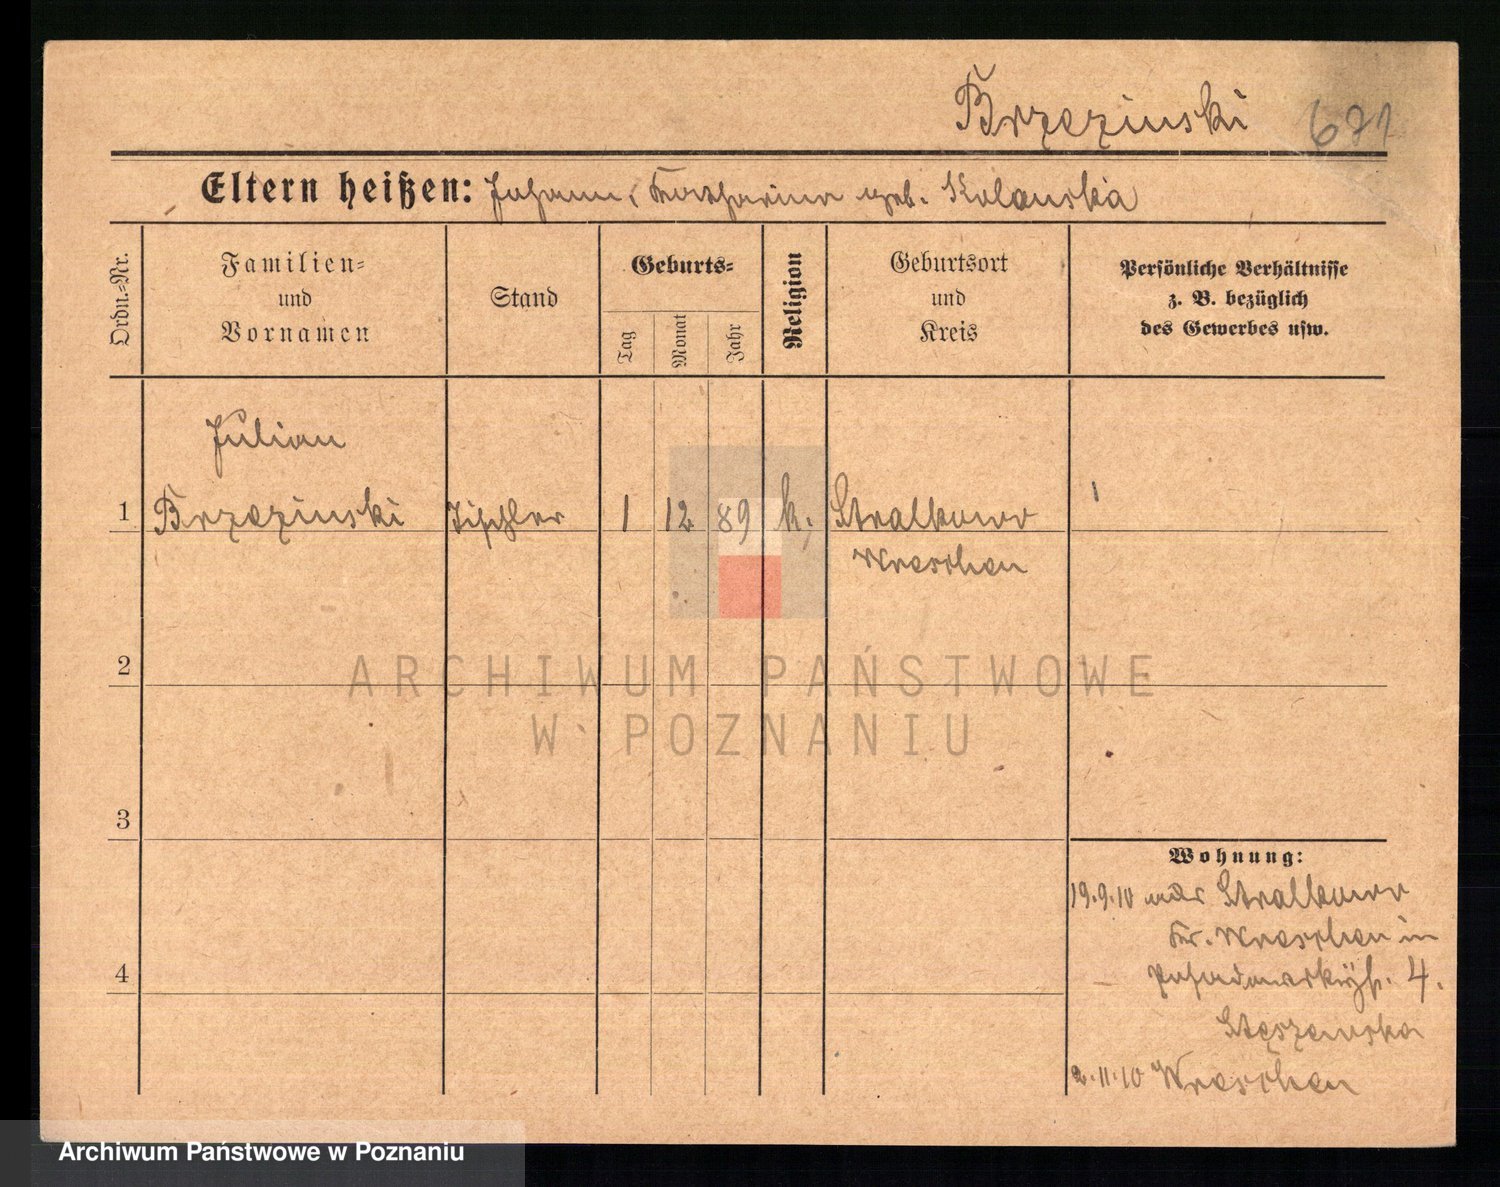 Brzezinski 671
Eltern heißen: Johann, Katharina geb. Kolanska
Ordn.-Nr.
Familien-
und
Vornamen
Stand
Geburts-
Tag
Monat
Jahr
Religion
Geburtsort
und
Kreis
Persönliche Verhältnisse
z. B. bezüglich
des Gewerbes usw.
Julian
1 Brzezinski Tischler 1 12 89 k. Stralkowo
Wreschen
2
ARCHIWUM PAŃSTWOWE
W POZNANIU
3
Wohnung:
19.9.10 Stralkowo
Kr. Wreschen in
4 4.
Stęszewska
2.11.10 Wreschen
Archiwum Państwowe w Poznaniu